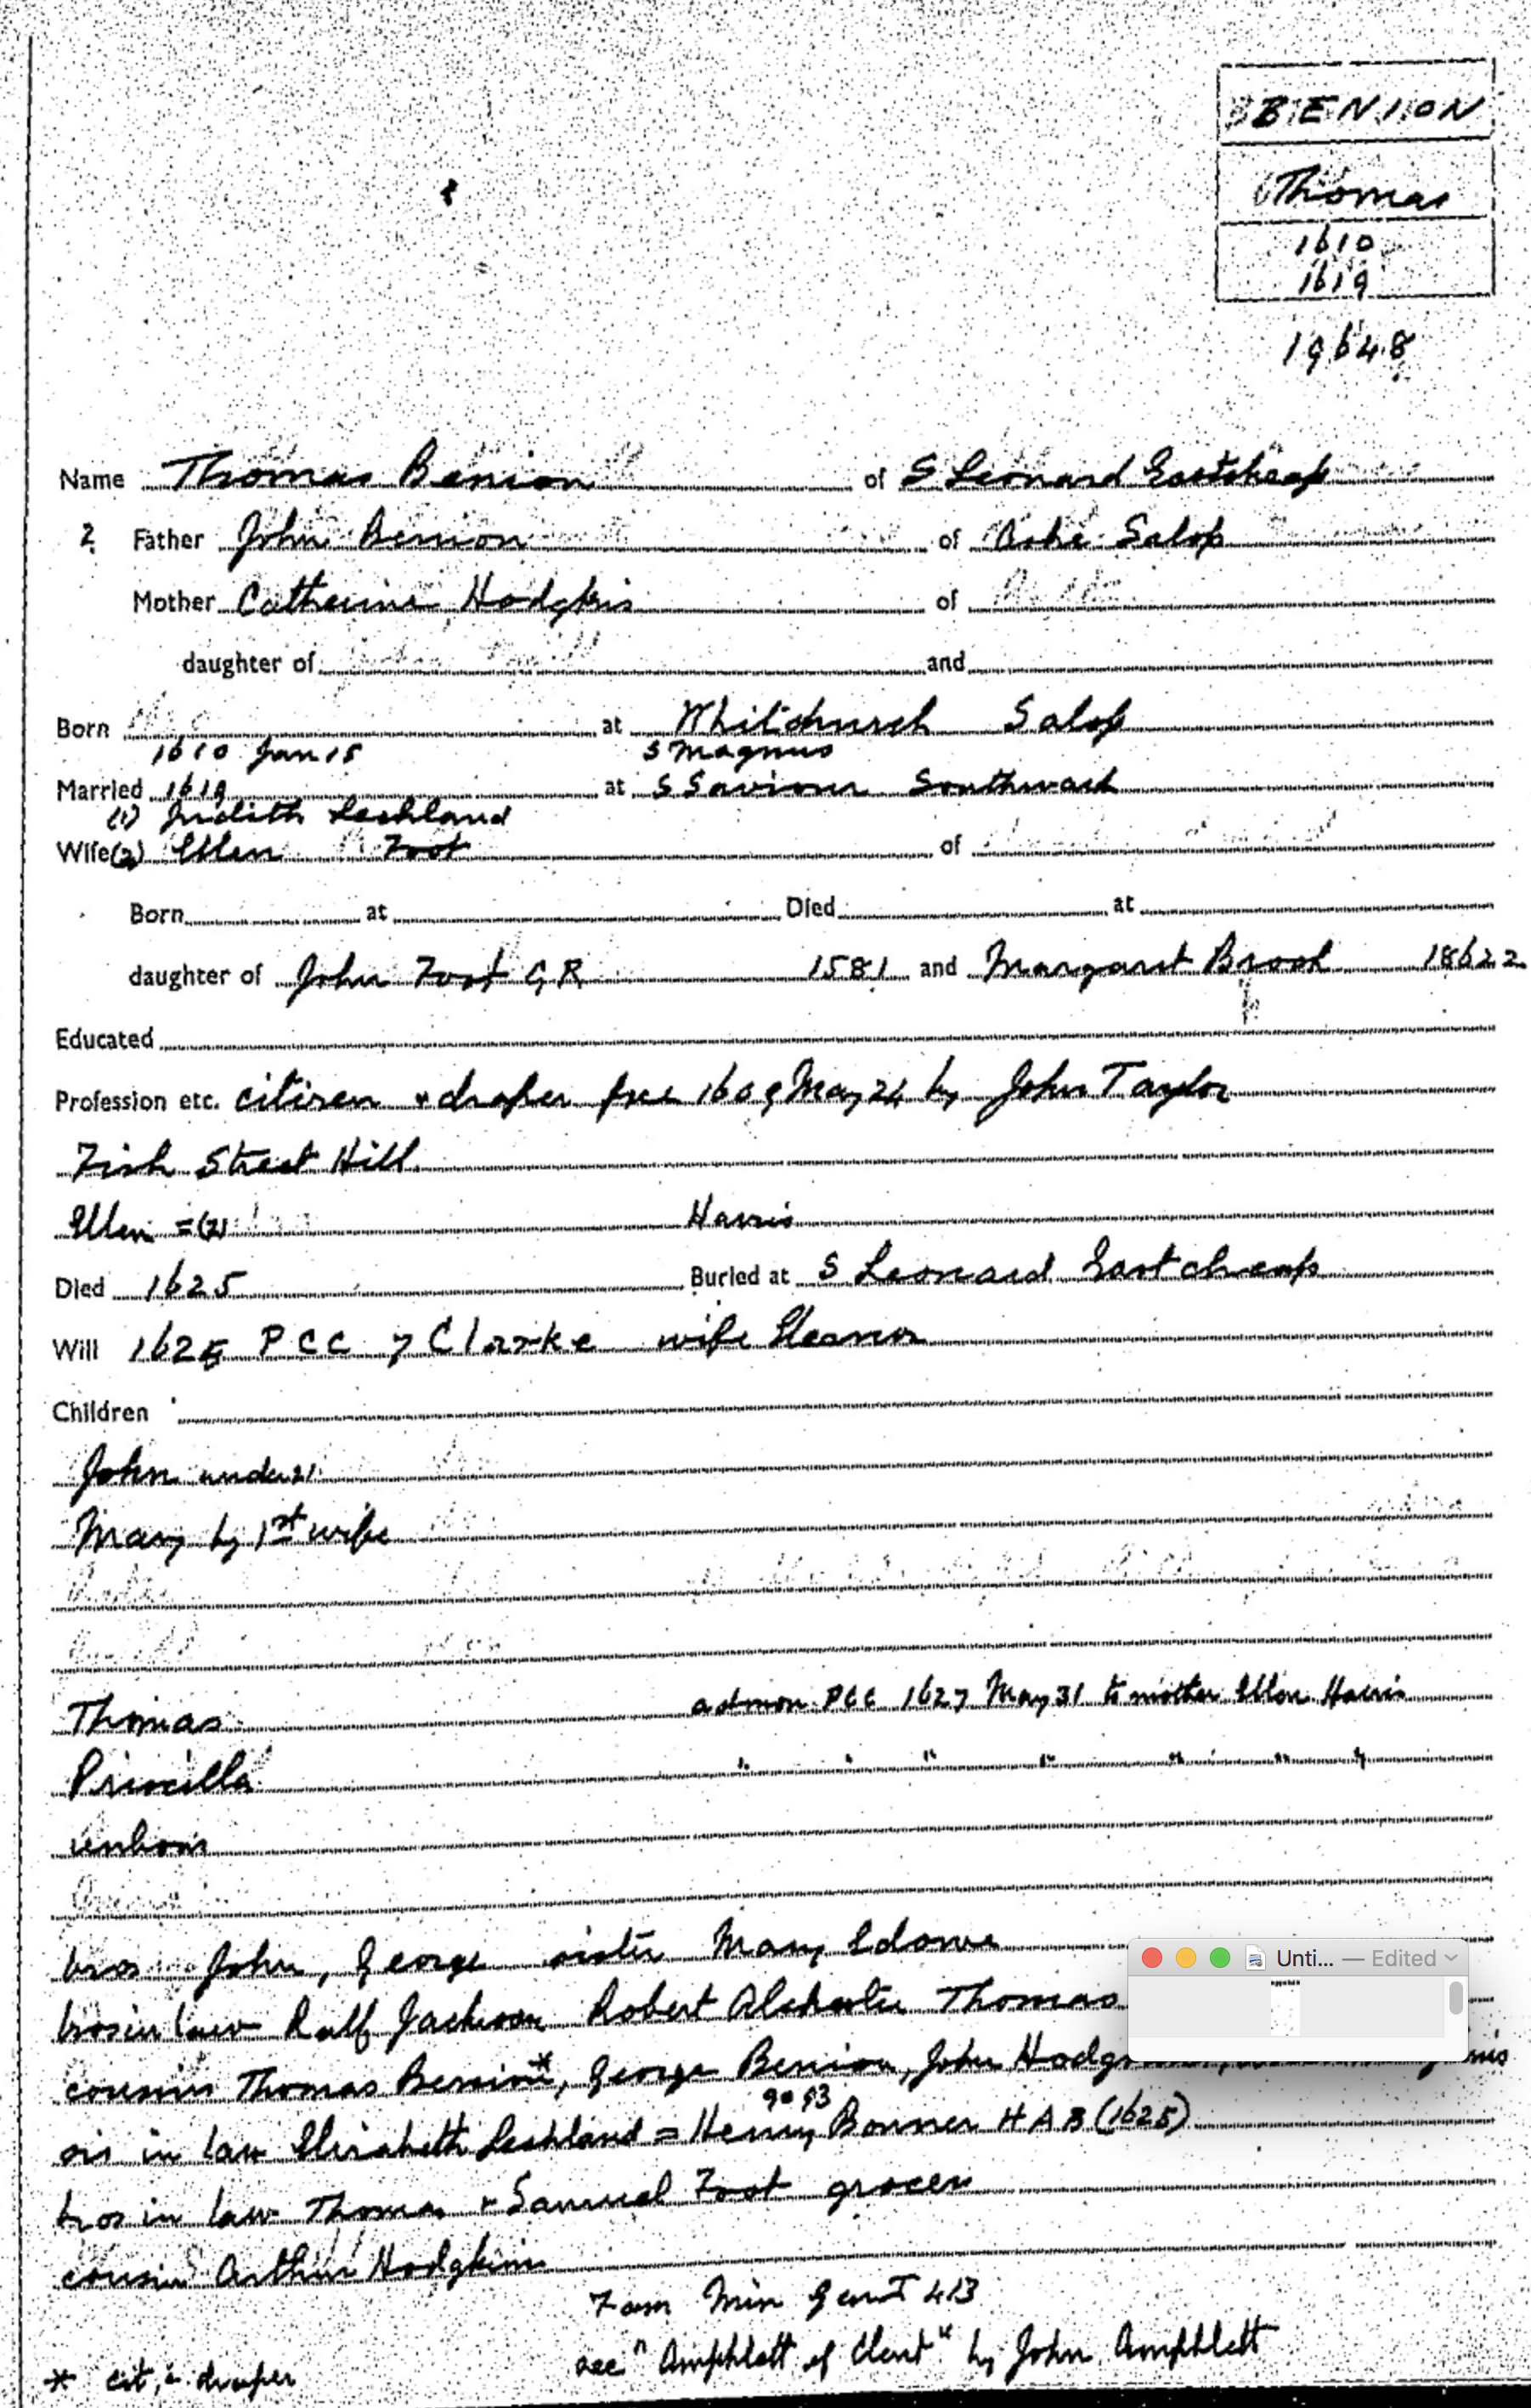 BENION
Thomas
1610
1619
19648
Name Thomas Benion of S Leonard Eastcheap
? Father John Benion of Ashe Salop
Mother Catherine Hodgkis of
daughter of and
Born at Whitchurch Salop
1610 Jan 15 S Magnus
Married 1619 at S Saviour Southwark
(1) Judith Leshland
Wife (2) Ellen Foot of
Born at Died at
daughter of John Foot G R 1581 and Margaret Brook 18622
Educated
Profession etc. citizen & draper free 1609 May 24 by John Taylor
Fish Street Hill
Ellen = (2) Harris
Died 1625 Buried at S Leonard Eastcheap
Will 1625 P C C 7 Clarke wife Eleanor
Children
John under 21
Mary by 1st wife
Thomas admon PCC 1627 May 31 to mother Ellen Harris
Priscilla " " " " " " "
unborn
bros John, George sister Mary Edowe
bros in law Ralf Jackson Robert Thomas
cousins Thomas Benion*, George Benion, John
9093
sis in law Elizabeth Leshland = Henry Bonner H A B (1625)
bros in law Thomas & Samuel Foot grocer
cousin Arthur Hodgkin
Fam Min Gent I 413
* cit. & draper see "Amphlett of Clent" by John Amphlett
Unti... — Edited